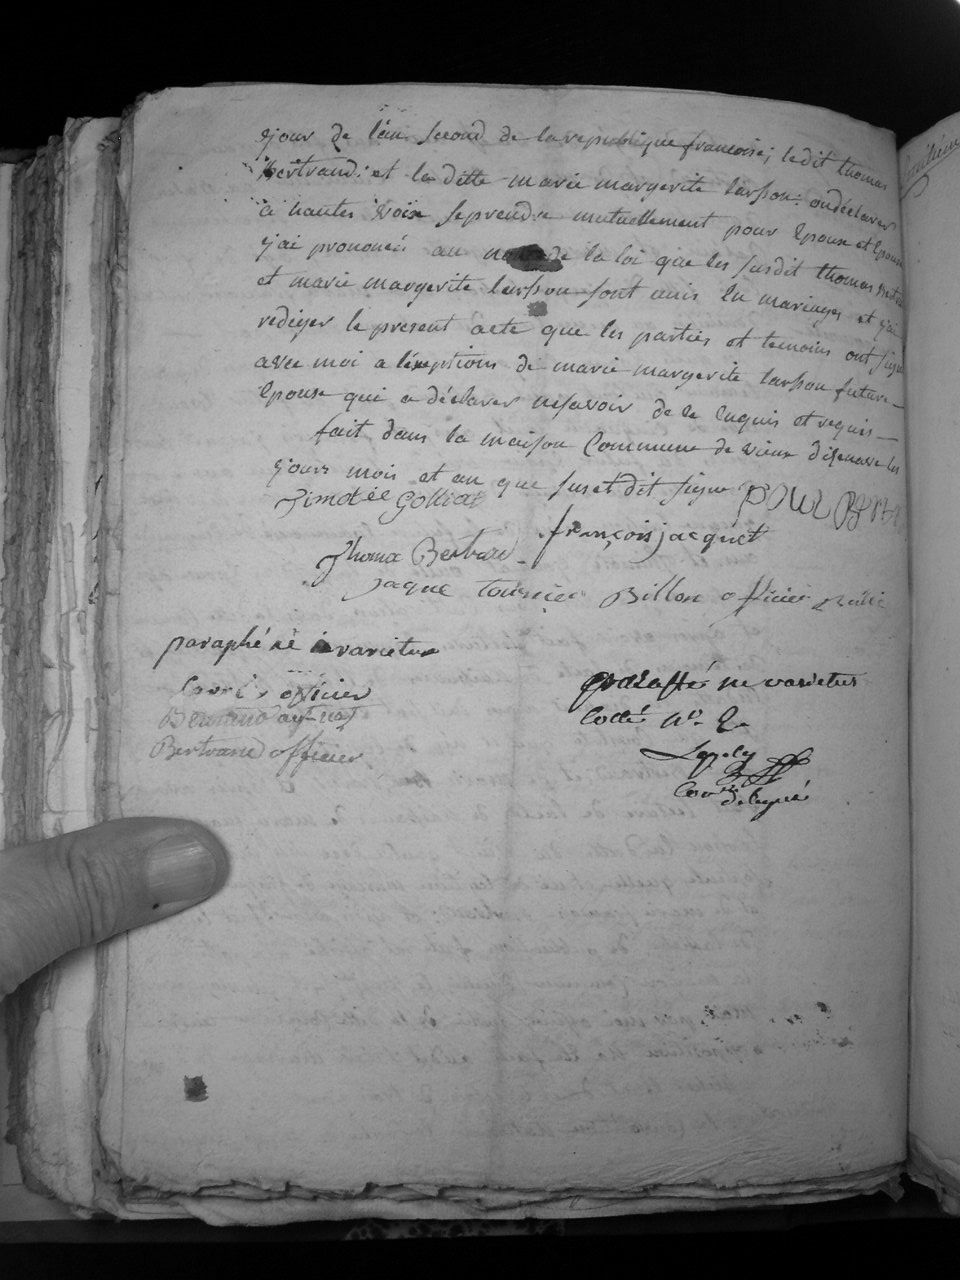 jour de l'an second de la republique francoise; ledit thomas
Bertrand: et la ditte marie margerite larsson: on déclarer
à hautes voix se prendre mutuellement pour Epouse et Epouse
j'ai prononcé au nom de la loi que les susdit thomas Bertr
et marie margerite larsson sont unis En mariages et j'ai
rediger le present acte que les parties et temoins ont signe
avec moi a l'éxeptions de marie margerite larsson future
Epouse qui a déclarer ne savoir de ce Enquis et requis
fait dans la maison Commune de vieux les
jours mois et an que sus et dit signe pour Bert
Timotée Golliat
françois jacquet
Thoma Bertrand
Jaque tournier Billon officier
paraphé né varietur
officier
Bertrand officier
paraffé ne varietur
Cotté n°. 2
délégué